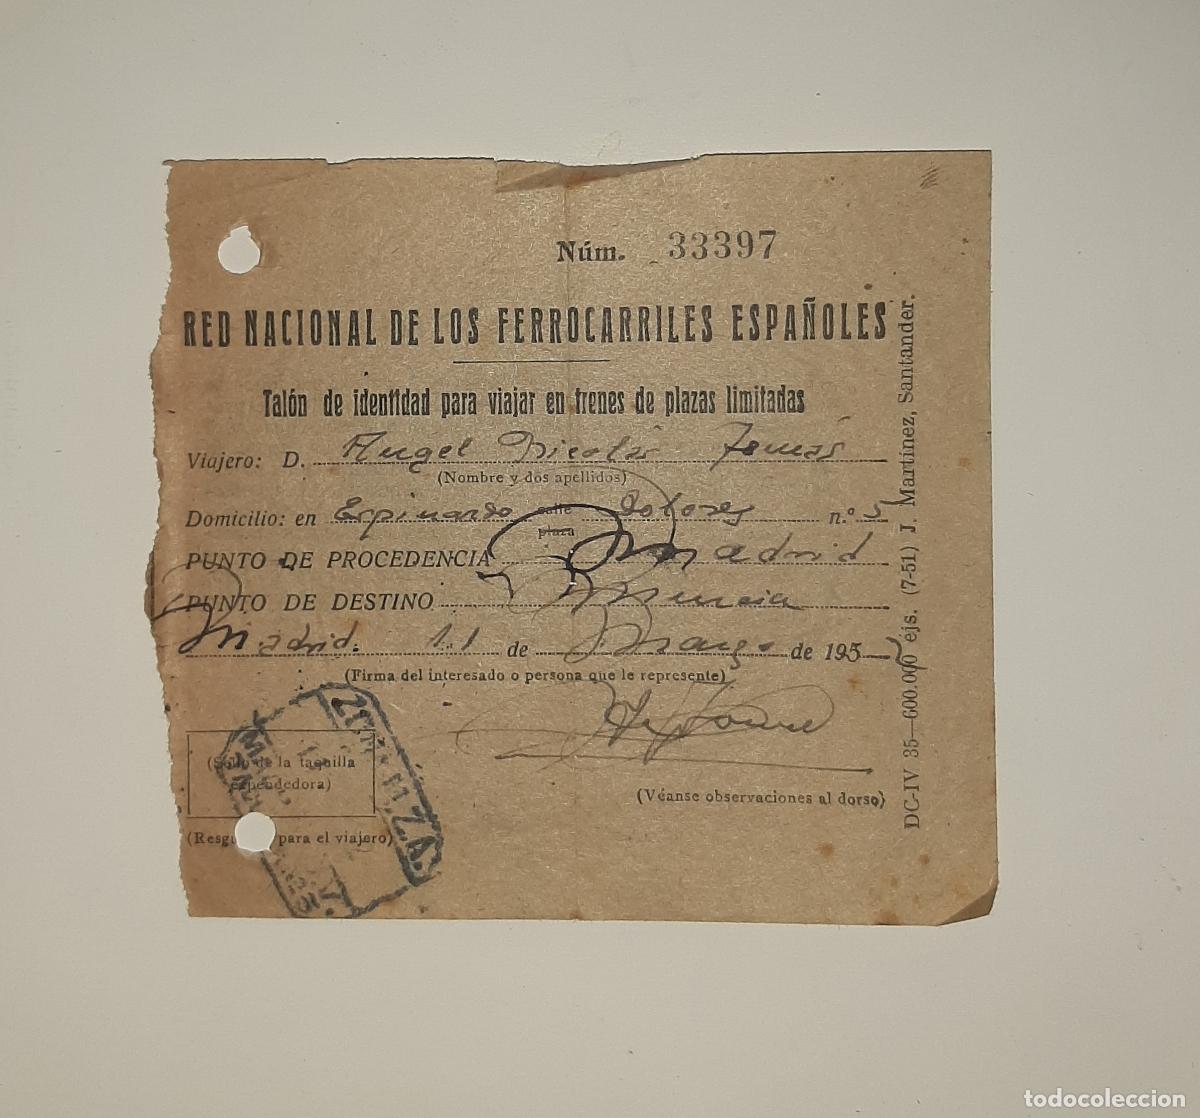 Núm. 33397
RED NACIONAL DE LOS FERROCARRILES ESPAÑOLES
Talón de identidad para viajar en trenes de plazas limitadas
Viajero: D. Angel Nicolás Tomás
(Nombre y dos apellidos)
Domicilio: en Espinardo calle Dolores n.º 5
plaza
PUNTO DE PROCEDENCIA Madrid
PUNTO DE DESTINO Murcia
Madrid 11 de Marzo de 195
(Firma del interesado o persona que le represente)
(Sello de la taquilla
expendedora)
(Véanse observaciones al dorso)
para el viajero)
DC-IV 35—600.000 ejs. (7-51) J. Martínez, Santander.
todocoleccion